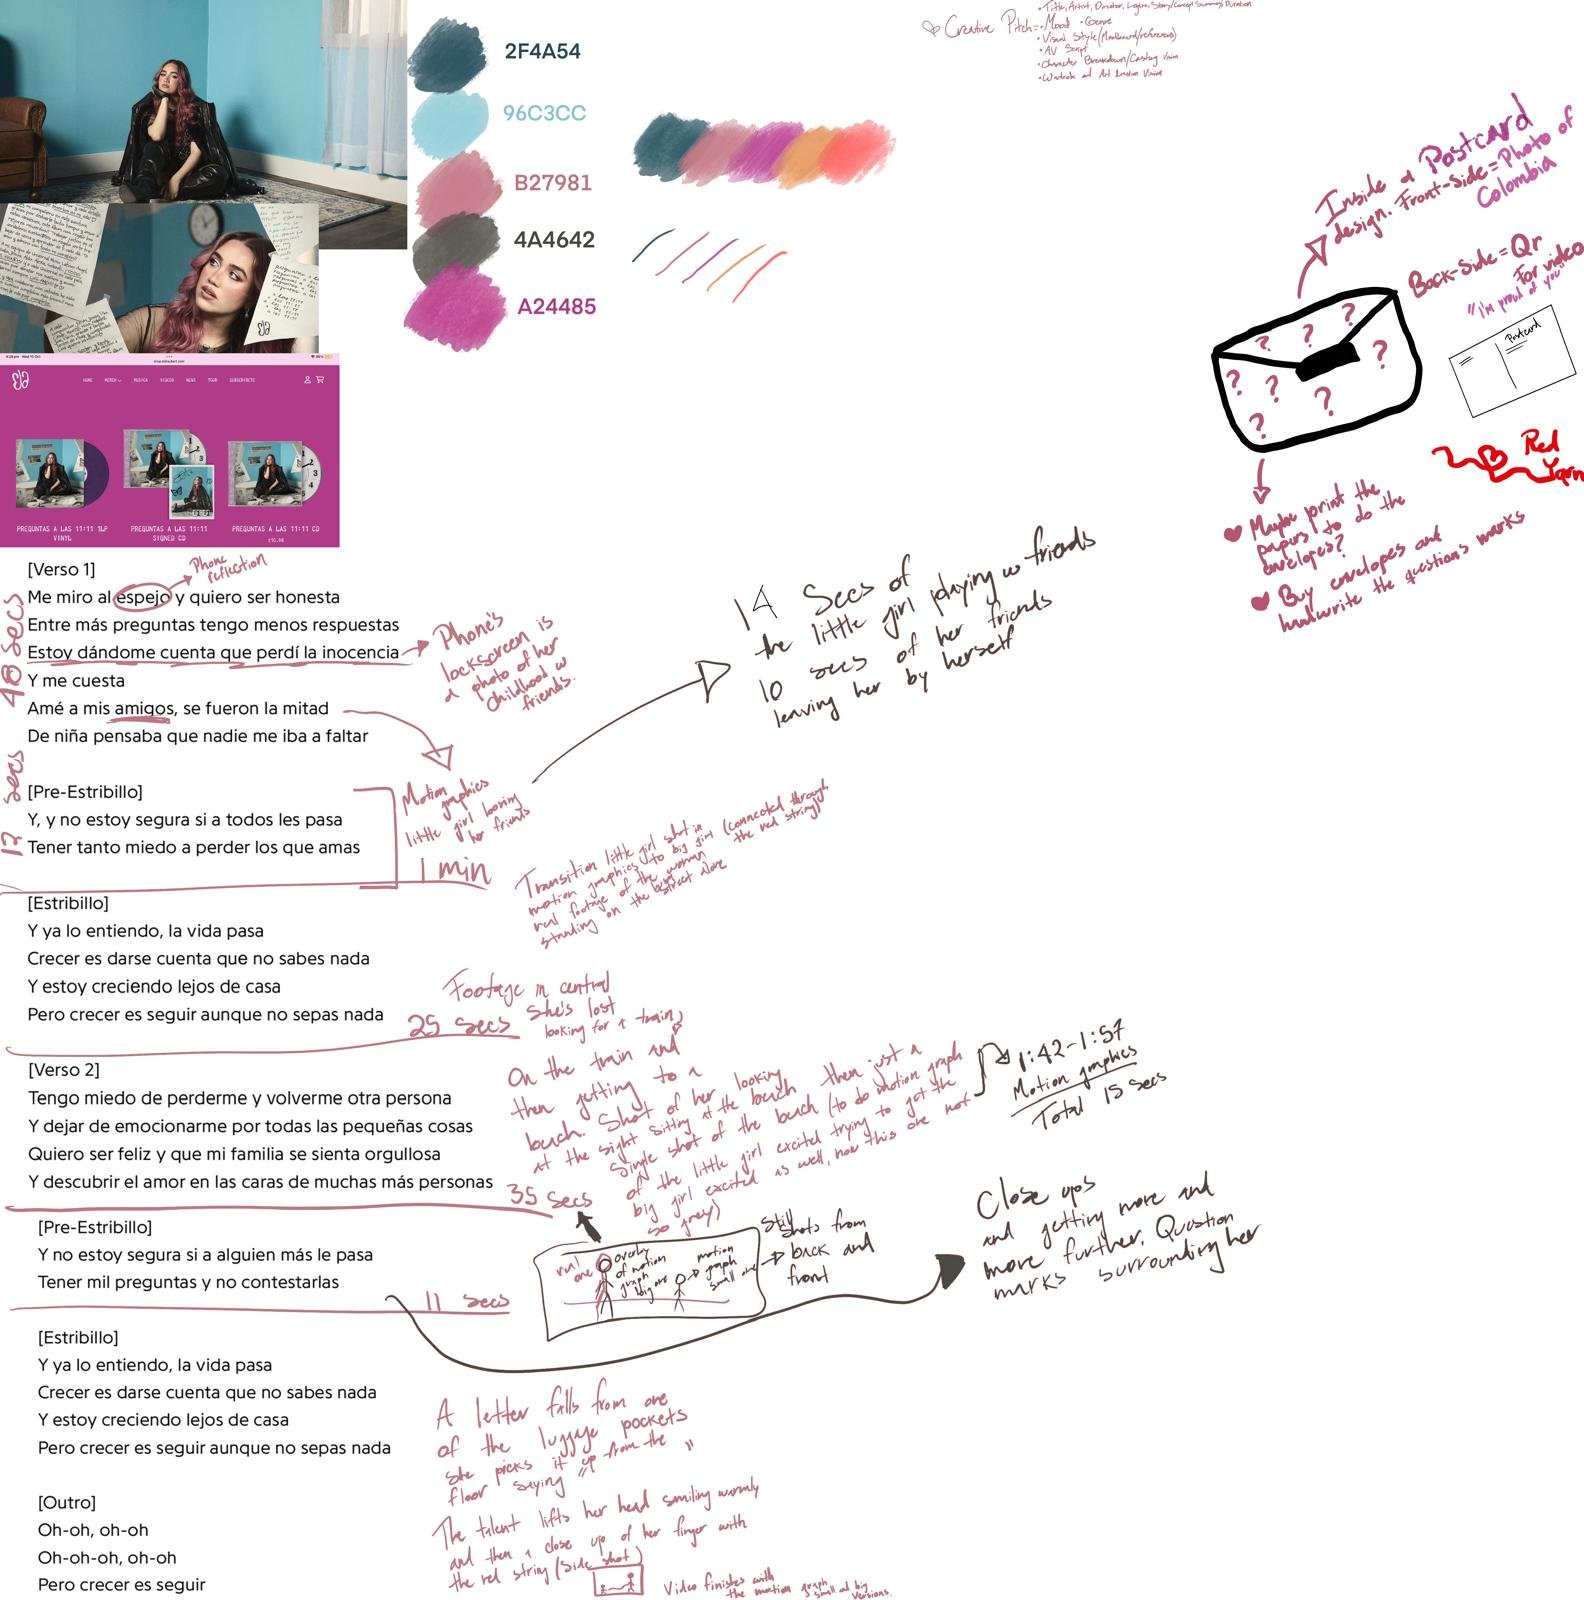 2F4A54
96C3CC
B27981
4A4642
A24485
Creative Pitch =
• Title, Artist, Director, Logline, Story/Concept Summary/Duration
• Mood • Genre
• Visual Style (Moodboard/references)
• AV Script
• Character Breakdown/Casting Vision
• Wardrobe and Art Direction Vision
Inside a Postcard
design. Front-Side = Photo of
Colombia
Back-Side = Qr
For video
"I'm proud of you"
Postcard
? ? ?
? ? ? ?
?
Red
Yarn
Maybe print the
papers to do the
envelopes?
Buy envelopes and
handwrite the questions marks
HOME MERCH MUSICA VIDEOS NEWS TOUR SUBSCRIBETE
PREGUNTAS A LAS 11:11 1LP
VINYL
PREGUNTAS A LAS 11:11
SIGNED CD
PREGUNTAS A LAS 11:11 CD
[Verso 1]
Me miro al espejo y quiero ser honesta
Entre más preguntas tengo menos respuestas
Estoy dándome cuenta que perdí la inocencia
Y me cuesta
Amé a mis amigos, se fueron la mitad
De niña pensaba que nadie me iba a faltar
48 secs
Phone
reflection
Phone's
lockscreen is
a photo of her
childhood w
friends.
14 Secs of
the little girl playing w friends
10 secs of her friends
leaving her by herself
[Pre-Estribillo]
Y, y no estoy segura si a todos les pasa
Tener tanto miedo a perder los que amas
12 secs
Motion
graphics
little girl losing
her friends
1 min
Transition little girl shot in
motion graphics to big girl (connected through
real footage of the woman the red string)
standing on the street alone
[Estribillo]
Y ya lo entiendo, la vida pasa
Crecer es darse cuenta que no sabes nada
Y estoy creciendo lejos de casa
Pero crecer es seguir aunque no sepas nada
25 secs
Footage in central
She's lost
looking for a train)
[Verso 2]
Tengo miedo de perderme y volverme otra persona
Y dejar de emocionarme por todas las pequeñas cosas
Quiero ser feliz y que mi familia se sienta orgullosa
Y descubrir el amor en las caras de muchas más personas
35 secs
On the train and
then getting to a
beach. Shot of her looking
at the sight sitting at the beach then just a
Single shot of the beach (to do motion graph
of the little girl excited trying to get the
big girl excited as well, now this one not
so grey)
1:42-1:57
Motion graphics
Total 15 secs
real
one
overlay
of motion
graph
big one
motion
graph
small one
Still
shots from
back and
front
[Pre-Estribillo]
Y no estoy segura si a alguien más le pasa
Tener mil preguntas y no contestarlas
11 secs
Close ups
and getting more and
more further. Question
marks surrounding her
[Estribillo]
Y ya lo entiendo, la vida pasa
Crecer es darse cuenta que no sabes nada
Y estoy creciendo lejos de casa
Pero crecer es seguir aunque no sepas nada
A letter falls from one
of the luggage pockets
She picks it up from the
floor saying " "
[Outro]
Oh-oh, oh-oh
Oh-oh-oh, oh-oh
Pero crecer es seguir
The talent lifts her head smiling warmly
and then a close up of her finger with
the red string (Side shot)
Video finishes with
the motion graph
small and big
versions.